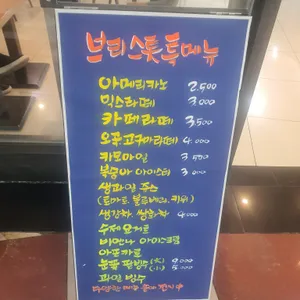 브티스롯 특메뉴
아메리카노 2.500
믹스라떼 3000
카페라떼 3,500
오곡고구마라떼 4.000
카모마일 3,500
복숭아 아이스티 3.000
생과일 쥬스
(토마토, 블루베리, 키위)
생강차, 쌍화차 4.000
수제 단게로
비엔나 아이스크림
아포카토
눈꽃 팥빙수 (大) 9.000
(小) 5.000
과일 빙수